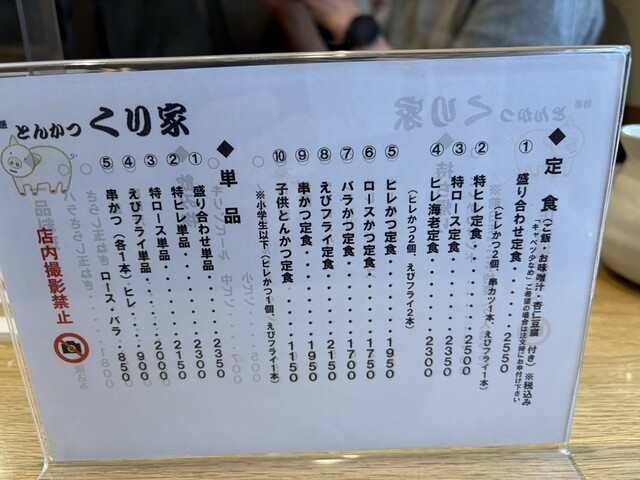 とんかつ くり家
◆定食 (ご飯・お味噌汁・杏仁豆腐 付き) ※税込み
「キャベツ少なめ」ご希望の場合は注文時にお申付け下さい
①盛り合わせ定食・・・・・2550
(ヒレかつ2個、串カツ1本、えびフライ1本)
②特ヒレ定食・・・・・・・2500
③特ロース定食・・・・・・2350
④ヒレ海老定食・・・・・・2300
(ヒレかつ2個、えびフライ2本)
⑤ヒレかつ定食・・・・・・1950
⑥ロースかつ定食・・・・・1750
⑦バラかつ定食・・・・・・1700
⑧えびフライ定食・・・・・2150
⑨串かつ定食・・・・・・・1950
⑩子供とんかつ定食・・・・1150
※小学生以下 (ヒレかつ1個、えびフライ1本)
◆単品
①盛り合わせ単品・・・・・2350
②特ヒレ単品・・・・・・・2300
③特ロース単品・・・・・・2150
④えびフライ単品・・・・・2000
⑤串かつ(各1本)ヒレ・・・900
ロース・バラ・850
店内撮影禁止